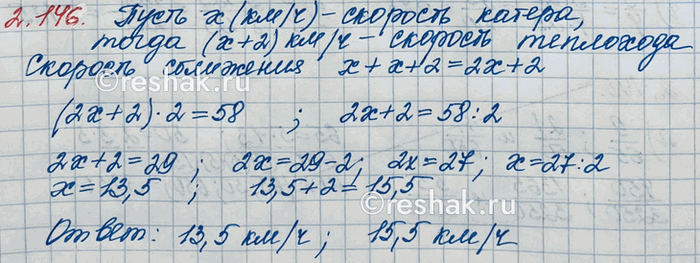 2.146. Пусть x (км/ч) - скорость катера,
тогда (x+2) км/ч - скорость теплохода
Скорость сближения x+x+2=2x+2
(2x+2)·2=58 ; 2x+2=58:2
2x+2=29 ; 2x=29-2; 2x=27; x=27:2
x=13,5 ; 13,5+2=15,5
Ответ: 13,5 км/ч ; 15,5 км/ч
©reshak.ru
©reshak.ru
©reshak.ru